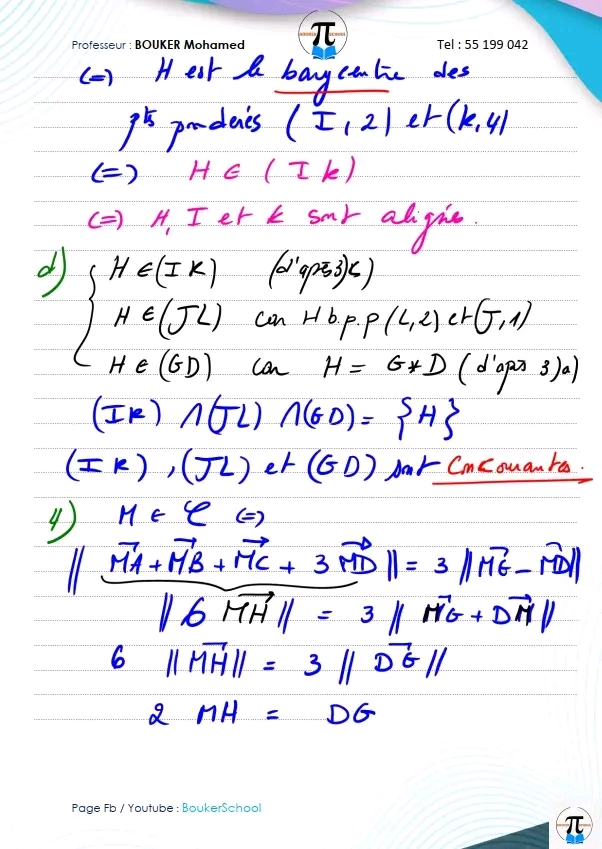 Professeur : BOUKER Mohamed
Tel : 55 199 042
(=) H est le barycentre des
pts pondérés (I, 2) et (k, 4)
(=) H ∈ (I k)
(=) H, I et k sont alignés.
d) { H ∈ (I K) (d'après 3)c)
H ∈ (JL) car H b.p.p (L, 2) et (J, 1)
H ∈ (GD) car H = G * D (d'après 3)a)
(I K) ∩ (JL) ∩ (GD) = {H}
(I K), (JL) et (GD) sont Concourantes.
4) M ∈ 𝒞 (=)
|| MA⃗ + MB⃗ + MC⃗ + 3 MD⃗ || = 3 || MG⃗ - MD⃗ ||
|| 6 MH⃗ || = 3 || MG⃗ + DM⃗ ||
6 || MH⃗ || = 3 || DG⃗ ||
2 MH = DG
Page Fb / Youtube : BoukerSchool